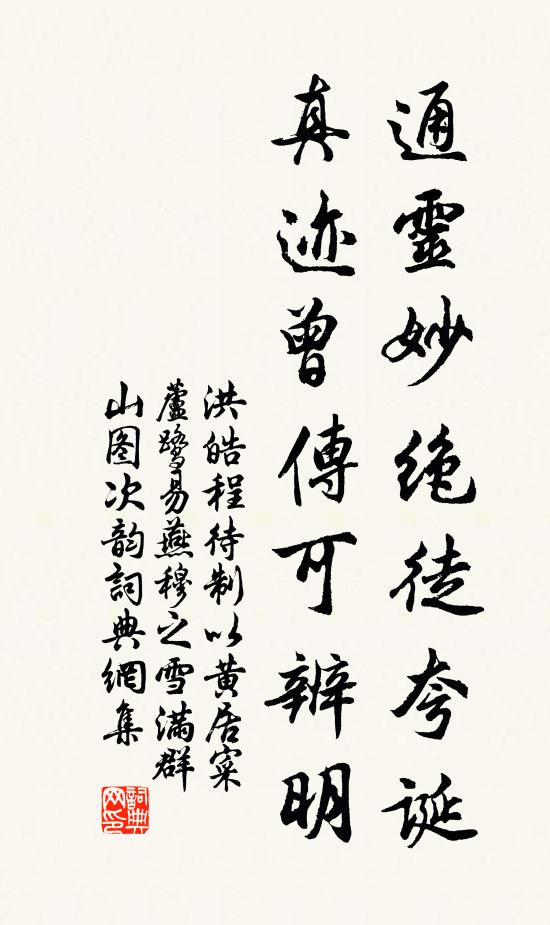 通靈妙絶徒夸誕
真迹曾傳可辨明
洪皓程待制以黄居寀
蘆鹭易燕穆之雪滿群
山图次韵詞典網集
詞典网印